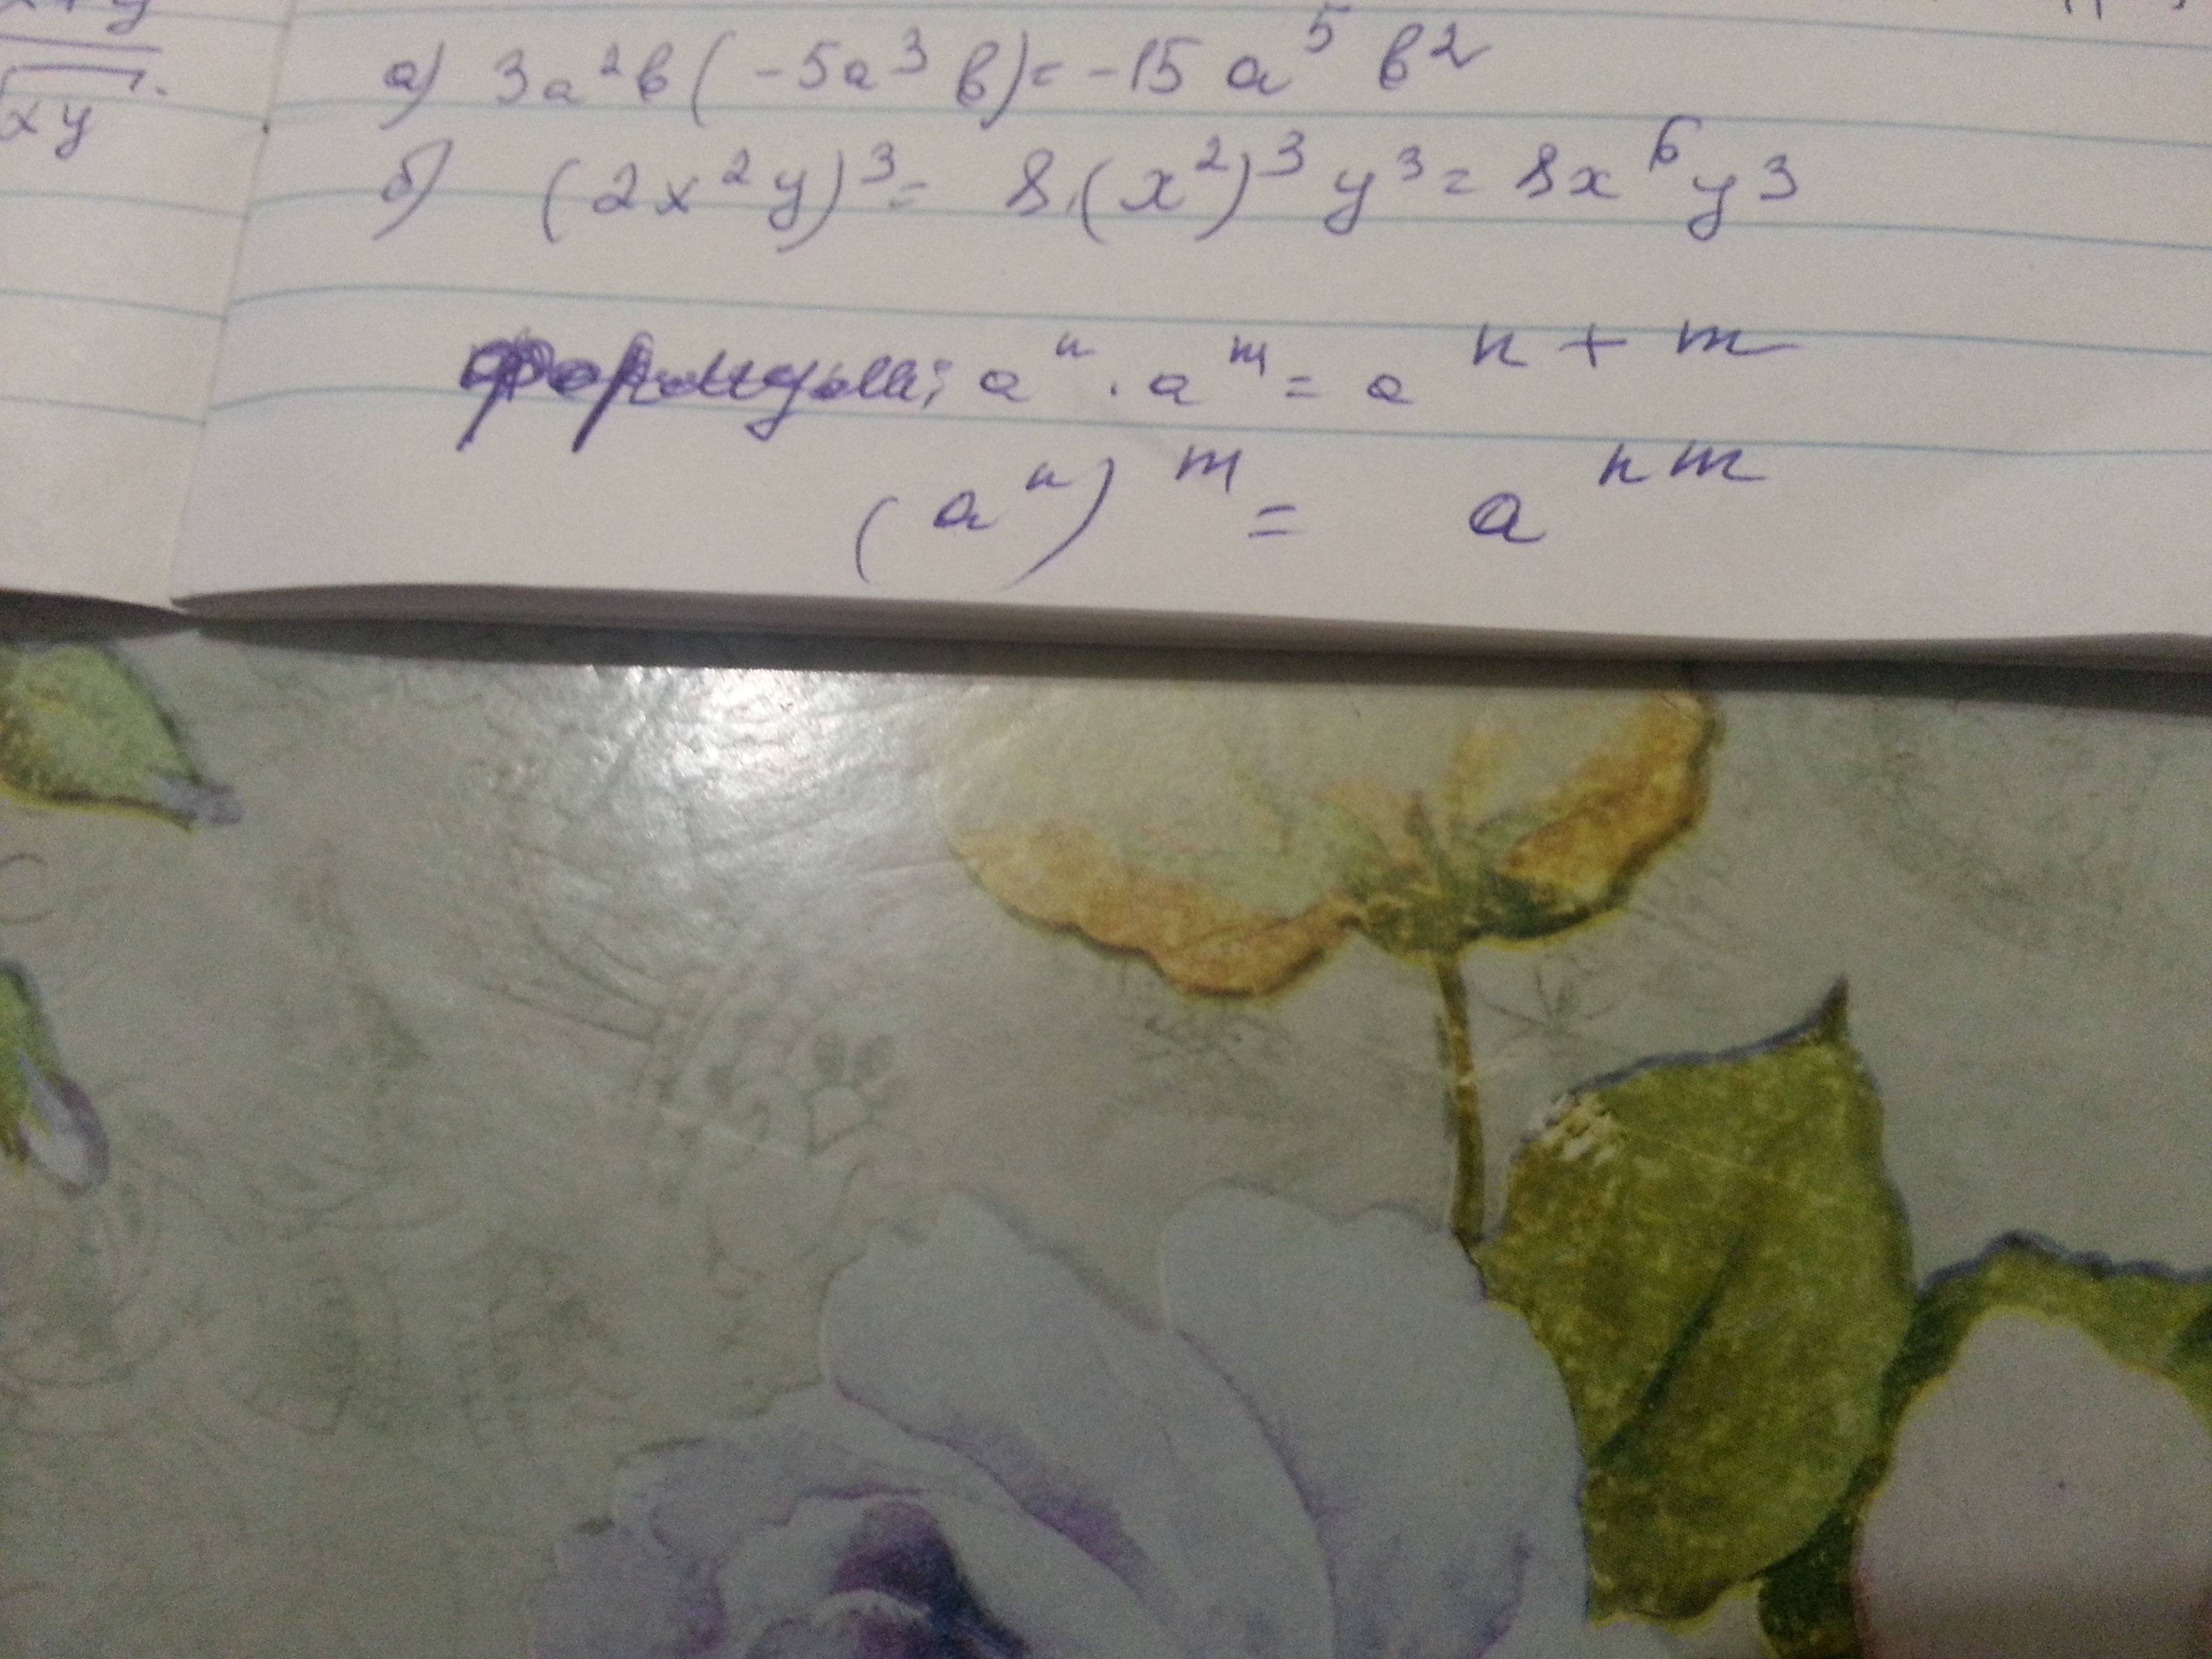 xy
а) 3a²b(-5a³b)=-15a⁵b²
б) (2x²y)³= 8.(x²)³y³=8x⁶y3
формулы: aⁿ·aᵐ=aⁿ⁺ᵐ
(aⁿ)ᵐ= aⁿᵐ